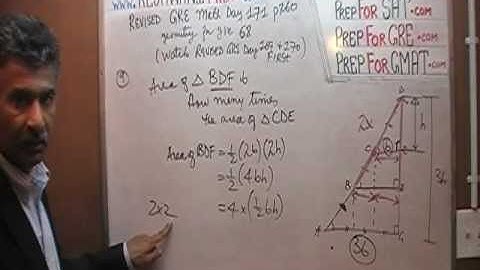 REVISED GRE Math Day 171 p260
geometry
68
(Watch REVISED GRE Day 269 + 270
FIRST)
PREPFORSAT.COM
PREPFORGRE.COM
PREPFORGMAT.COM
Area of △ BDF is
how many times
the area of △CDE
Area of BDF = 1/2 (2b)(2h)
= 1/2 (4bh)
2x2 = 4 x (1/2 bh)
2x
h
3h
C
B
36